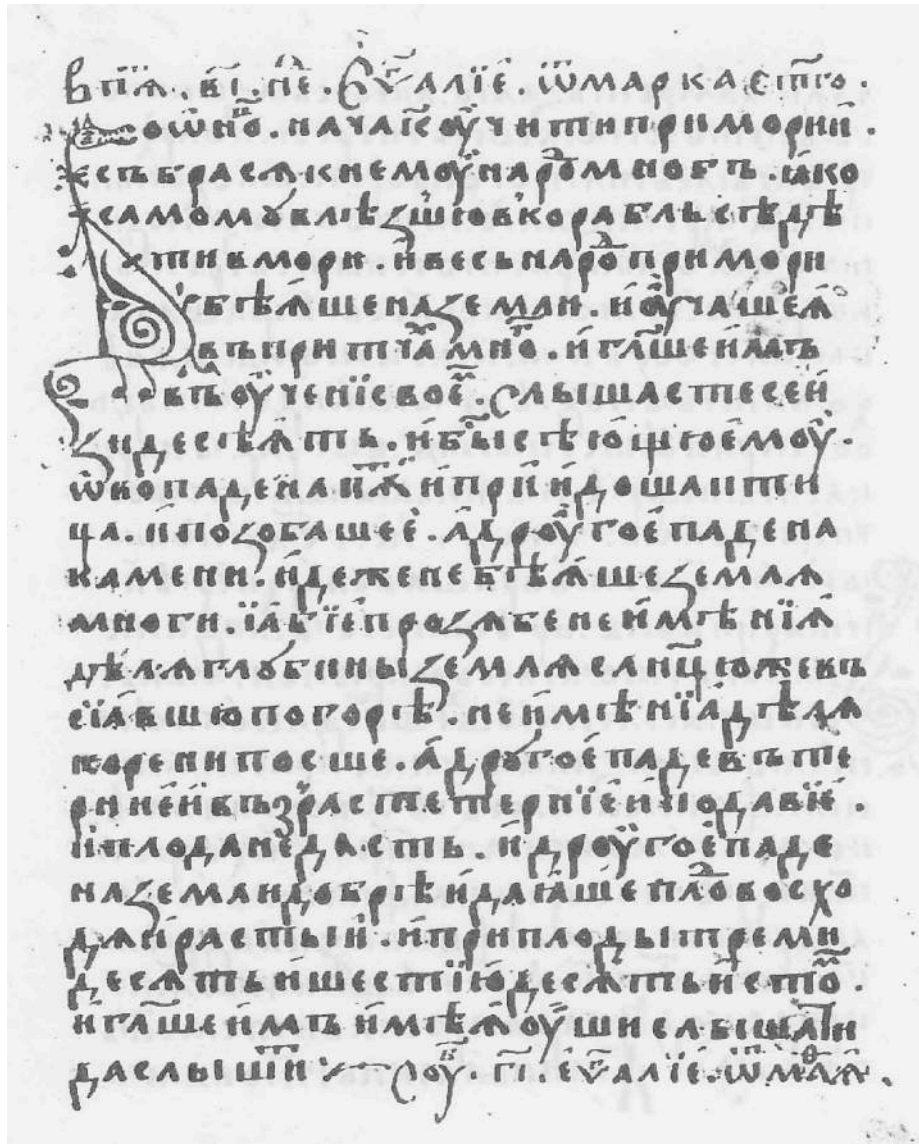 в пїѧ. в҃і. не҃. Єѵ҃алїе. ѿ марка ст҃го.
во ѡно. начат ї҃с оучити при мори.
и събрасѧ к немоу народ многъ. ꙗко
самомꙋ влѣзшю в корабль сѣдѣ
ти в мори. и весь народ при мори
бѣꙗше на земли. и оучаше ѧ
въ притчах много. и гл҃ше имъ
въ оученїи своем. слышасте се и
зиде сѣѧть. и бы сѣющю емоу.
ѡво паде на пѫти и приидоша пти
ца. и позобаше е. а дроугое паде на
камени. идеже не бѣꙗше землѧ
многи. їабїе прозѧбе не имѣнїꙗ
дѣлѧ глꙋбины землѧ слнцю же въ
сїавшю погорѣ. не имѣнїа дѣлѧ
корени посше. а дрꙋгое паде въ те
рнїе и възрасте тернїе и подави е.
и плода не дасть. и дроугое паде
на земли добрѣ и даꙗше плод восхо
дѧ и растыи. и приплоды три ми
десѧть и шестїю десѧть и сто.
и гл҃аше имъ имѣѧ оуши слышати
да слышит. строу. г҃і. еѵ҃алїе. ѿ мл҃ѧ.